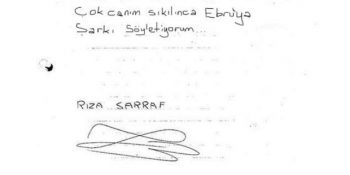 Çok canım sıkılınca Ebru'ya
Şarkı Söyletiyorum...
RIZA SARRAF